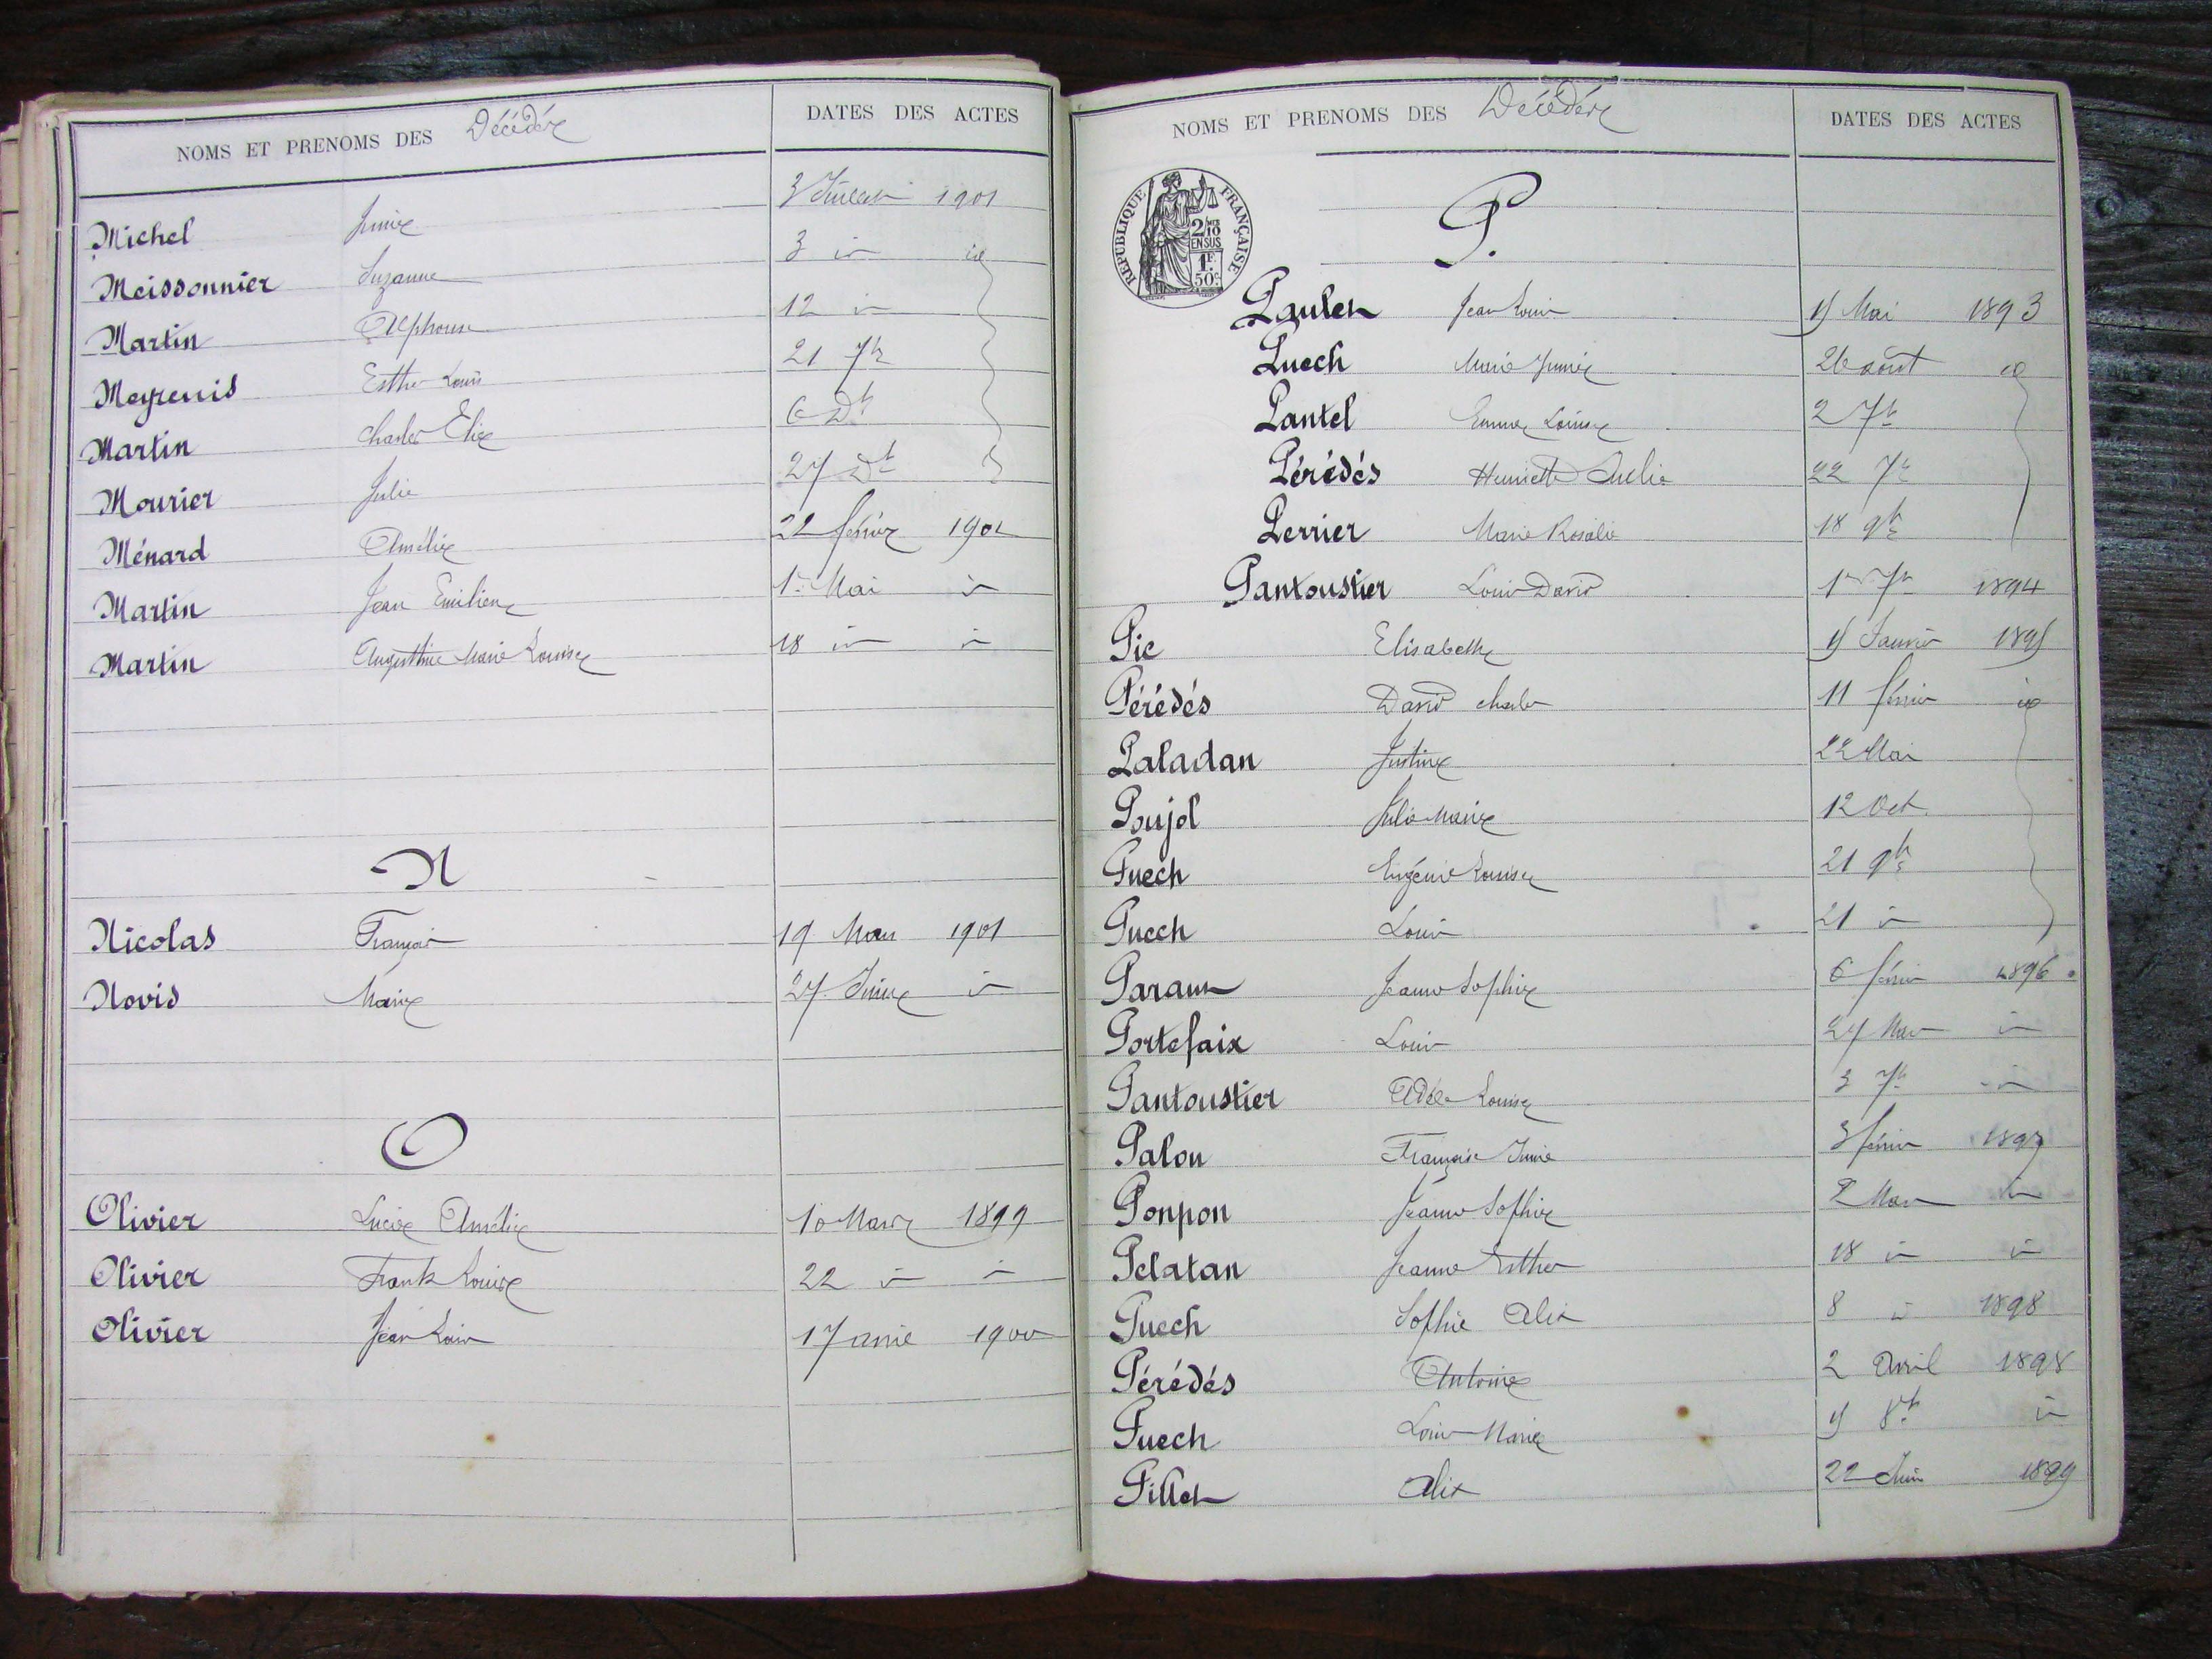 NOMS ET PRENOMS DES Décédés
DATES DES ACTES
Michel Junie 3 Juillet 1901
Meissonnier Suzanne 3 id id
Martin Alphonse 12 id
Meyrenis Esther Louis 21 7b
Martin Charles Elie 6 Db
Mourier Julie 27 Db
Ménard Amélie 22 février 1902
Martin Jean Emilien 1er Mai id
Martin Augusthine Marie Louise 18 id id
N
Nicolas François 19 Mars 1901
Novis Marie 27 Juin id
O
Olivier Lucie Amélie 10 Mars 1899
Olivier Frank Louise 22 id id
Olivier Jean Louis 1900
NOMS ET PRENOMS DES Décédés
DATES DES ACTES
REPUBLIQUE FRANÇAISE
2/10
EN SUS
1F
50c
P.
Paulet Jean Louis Mai 1893
Puech Marie Junie 26 août id
Pantel Emma Louise 2 7b
Pérédés Henriette Amelie 22 7b
Perrier Marie Rosalie 18 9b
Pantoustier Louis David 1er 7b 1894
Pic Elisabeth Janvier 1895
Pérédés David Charles 11 février id
Paladan Justine 22 Mai
Poujol Julie Marie 12 Oct
Puech Eugénie Louise 21 9b
Puech Louis 21 id
Jeanne Sophie 6 février 1896
Portefaix Louis 27 Mars id
Pantoustier Adèle Louise 3 7b id
Palon Françoise Junie 3 février 1897
Ponpon Jeanne Sophie 2 Mars id
Pelatan Jeanne Esther 18 id id
Puech Sophie Alix 8 id 1898
Pérédés Antoine 2 Avril 1898
Puech Louis Marie 8b id
Pillet Alix 22 Juin 1899